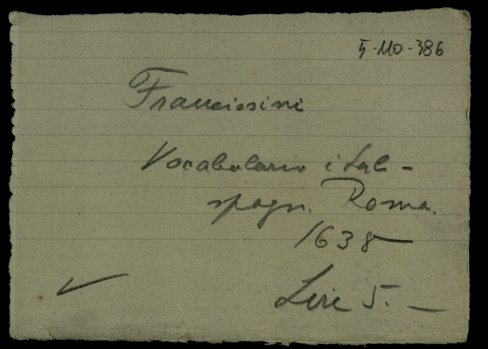 5-MO-386
Franciosini
Vocabolario ital-
spagn. Roma.
1638
Lire 5.—